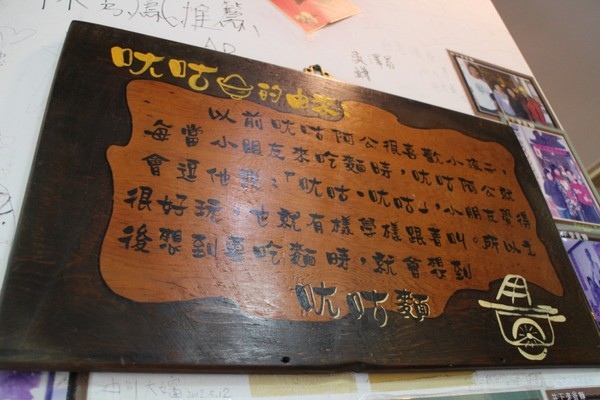 推薦
呔咕的由來
以前呔咕阿公很喜歡小孩子,
每當小朋友來吃麵時,呔咕阿公就
會逗他說:「呔咕、呔咕」,小朋友覺得
很好玩,也就有樣學樣跟著叫。所以之
後想到要吃麵時,就會想到
呔咕麵
2012.5.12